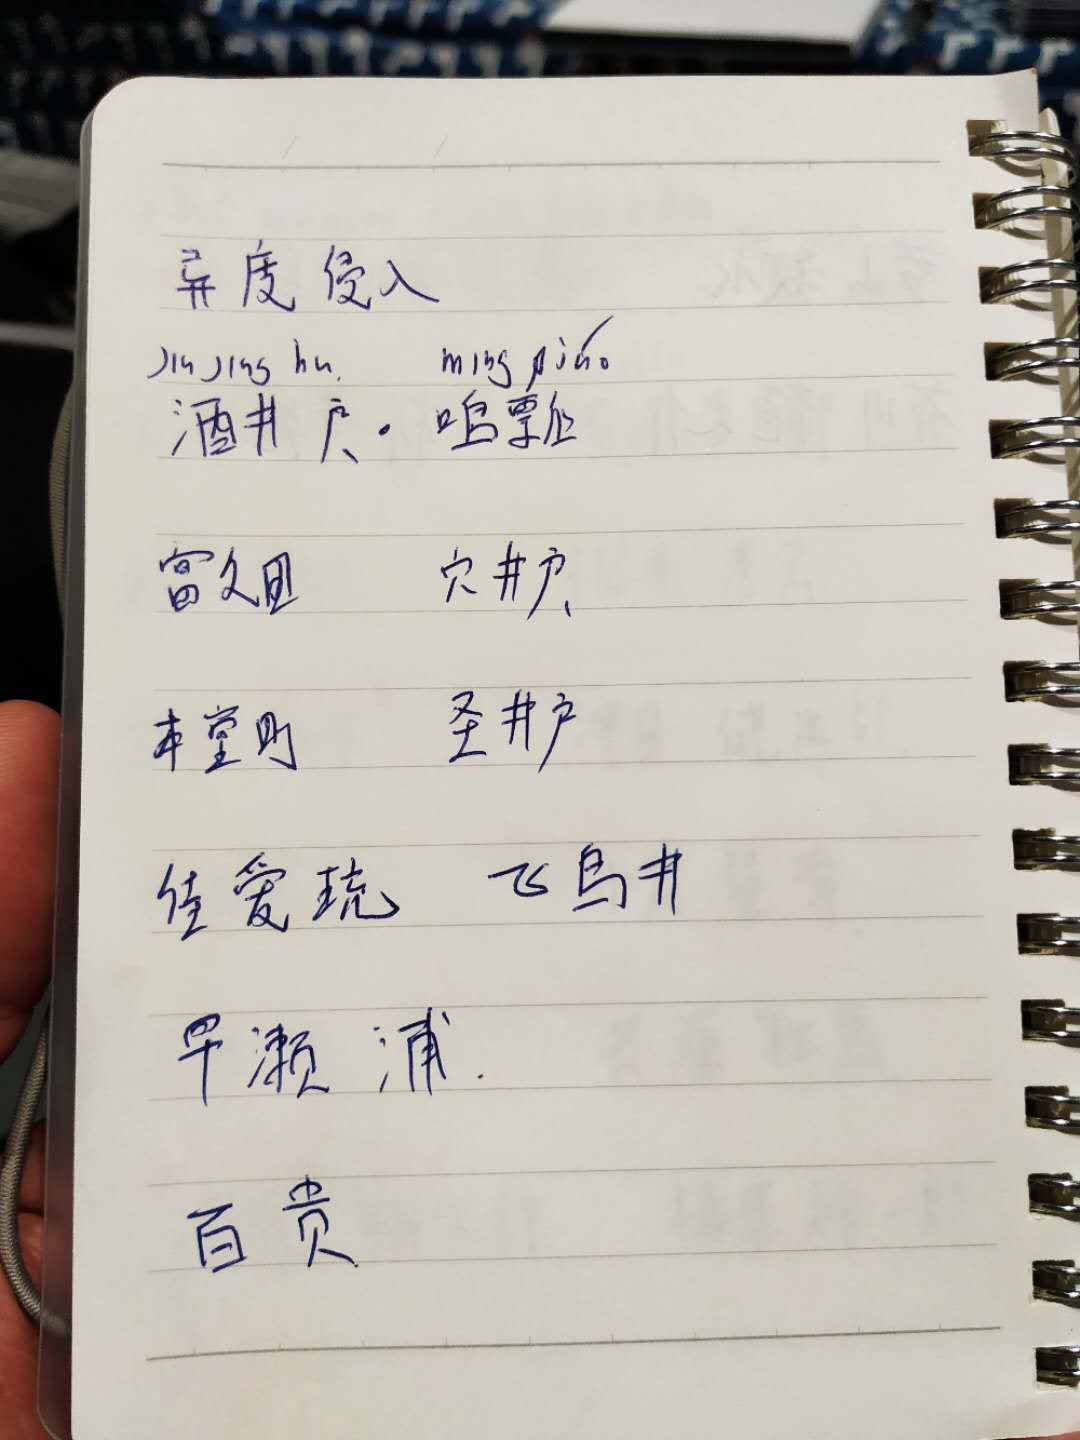 异度侵入
jiu jing hu. ming piao
酒井户. 鸣瓢
富久田 穴井户
本堂町 圣井户
佳爱琉 飞鸟井
早濑浦.
百贵